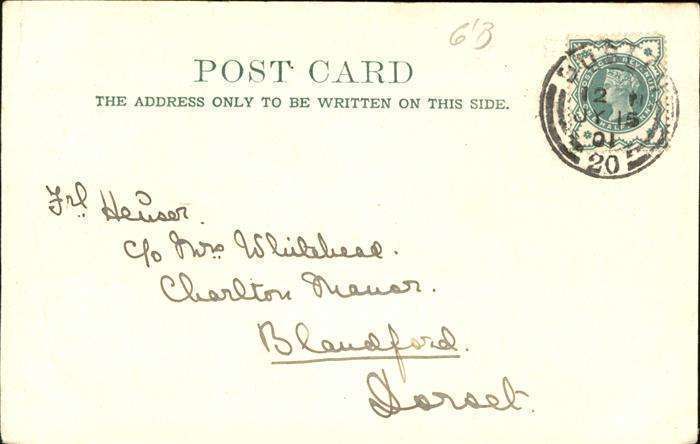 6'B
POST CARD
THE ADDRESS ONLY TO BE WRITTEN ON THIS SIDE.
2
JY 15
01
20
Frl. Heuser.
c/o Mrs Whitehead.
Charlton Manor.
Blandford.
Dorset.